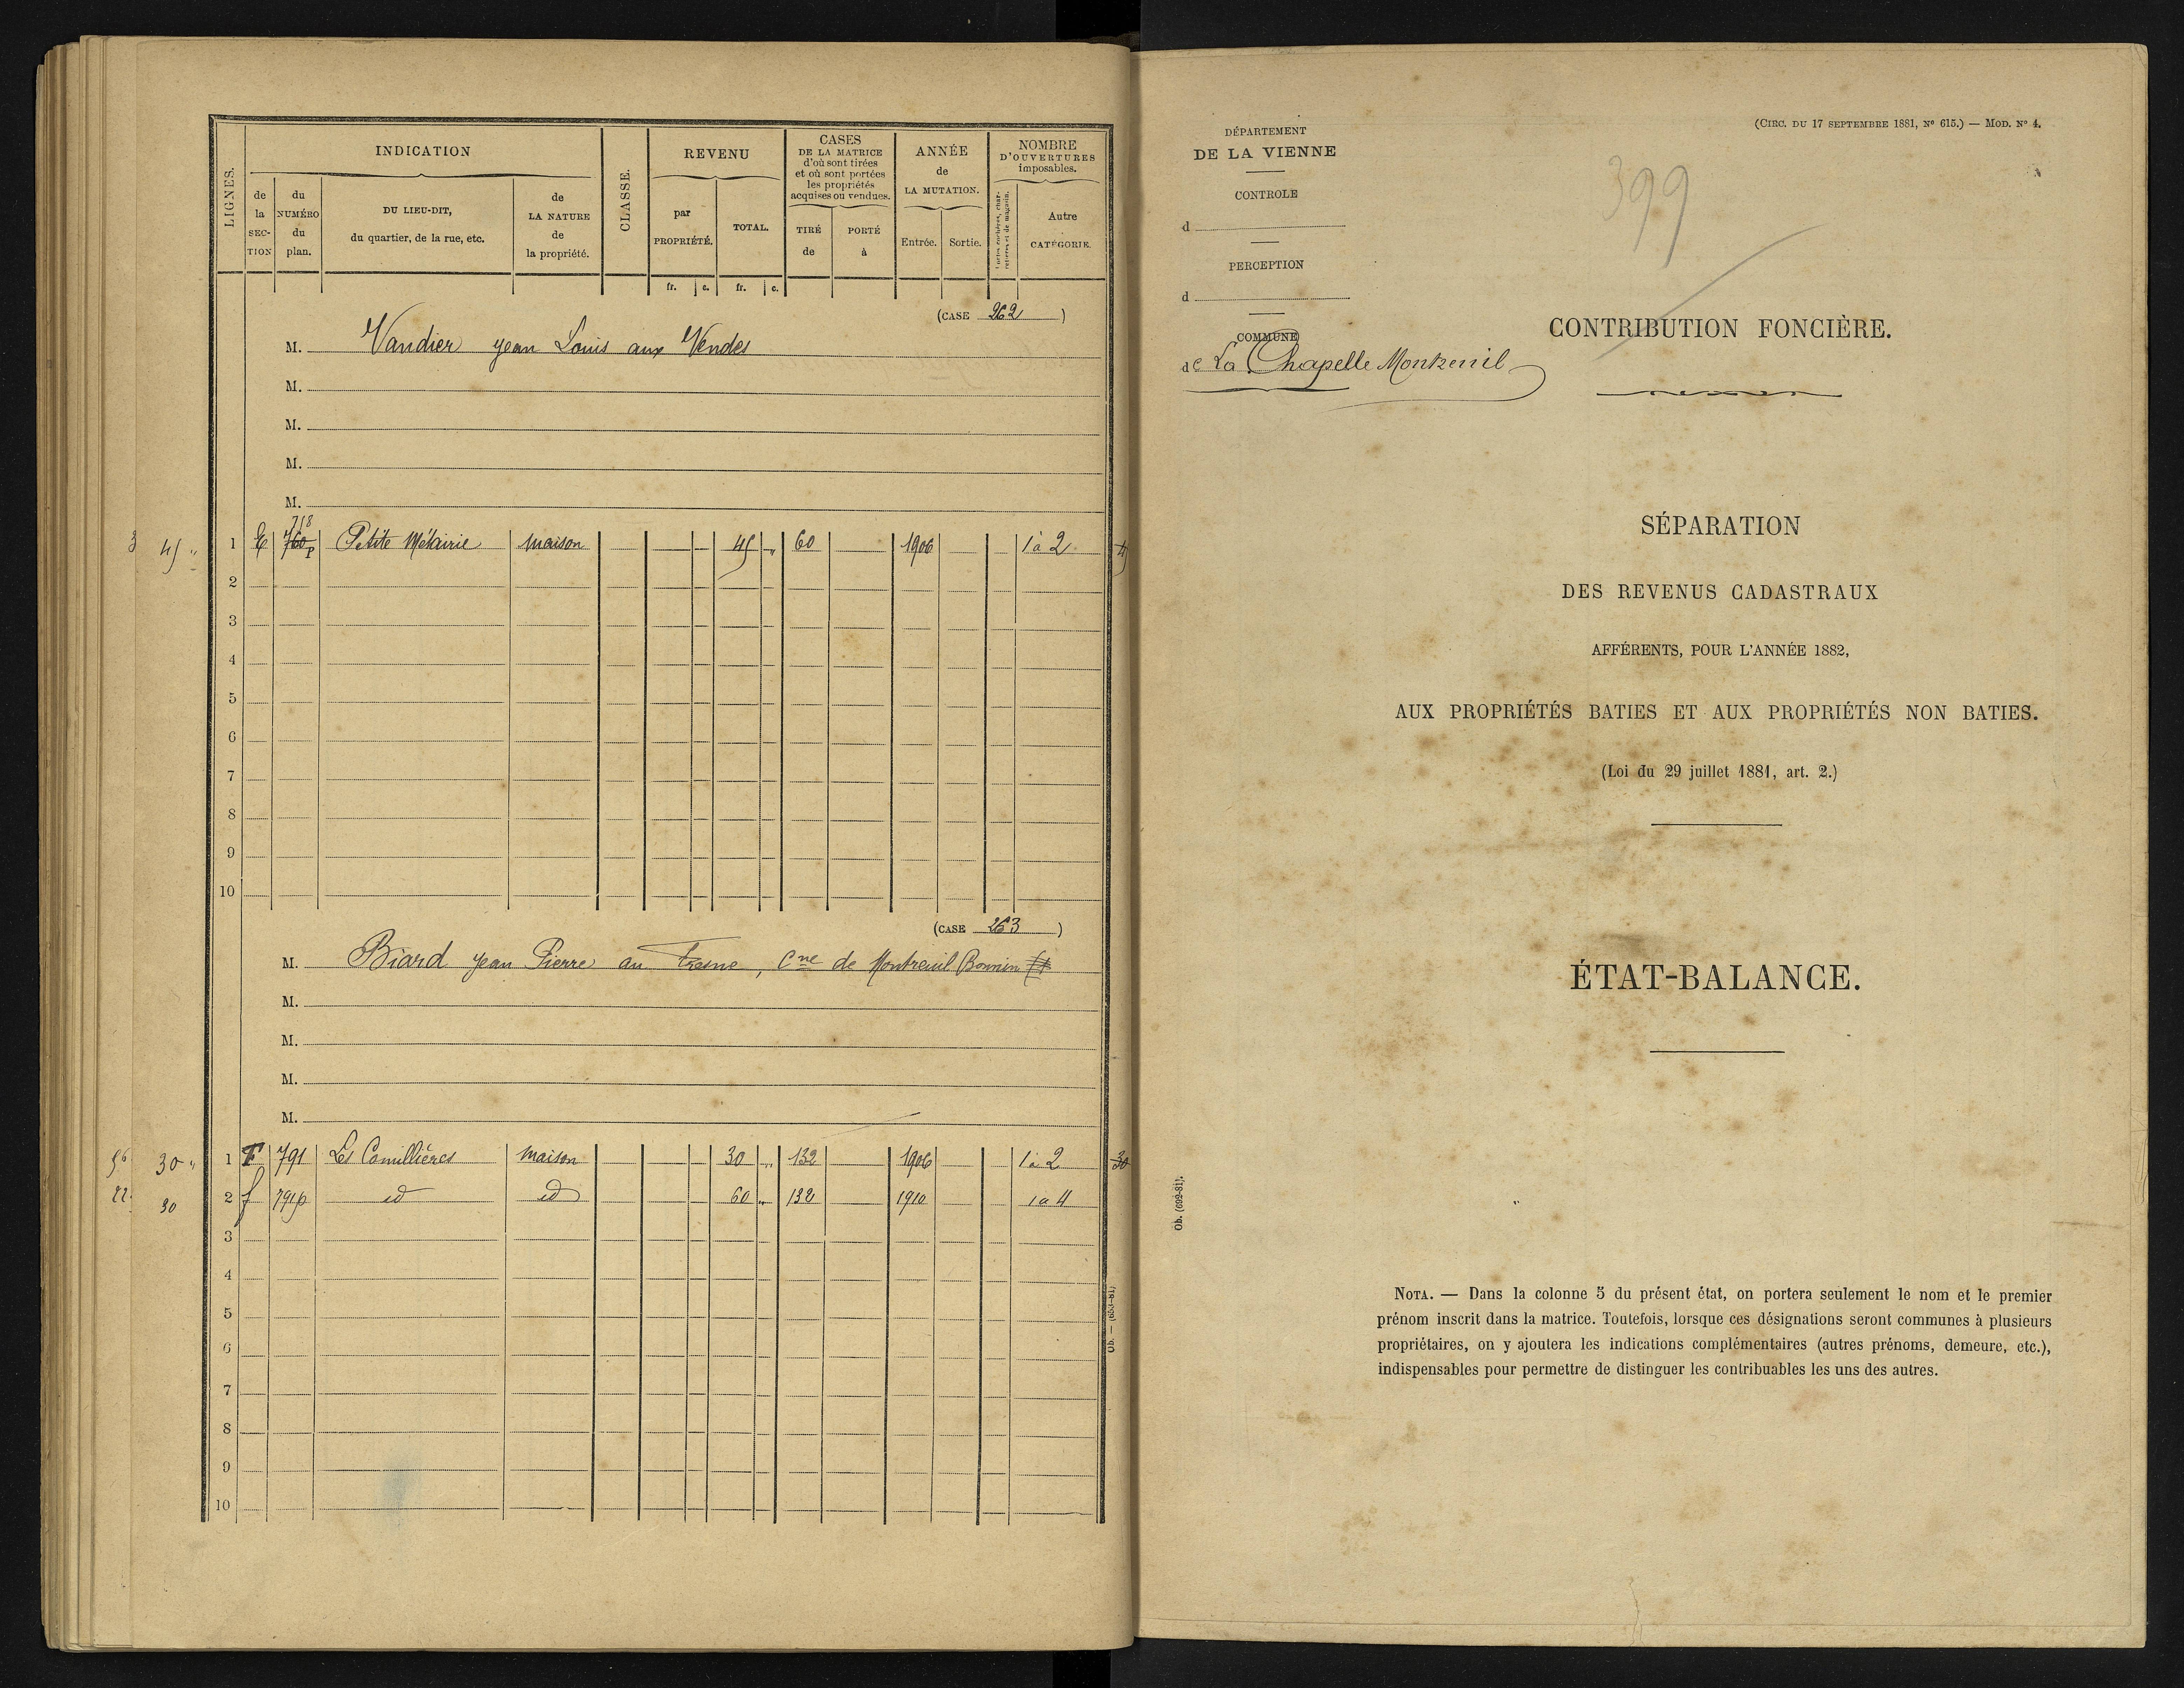 LIGNES.
INDICATION
de la SEC-TION
du NUMÉRO du plan.
DU LIEU-DIT, du quartier, de la rue, etc.
de LA NATURE de la propriété.
CLASSE.
REVENU
par PROPRIÉTÉ.
TOTAL.
fr. c. fr. c.
CASES
DE LA MATRICE
d'où sont tirées
et où sont portées
les propriétés
acquises ou vendues.
TIRÉ de
PORTÉ à
ANNÉE
de
LA MUTATION.
Entrée. Sortie.
NOMBRE
D'OUVERTURES
imposables.
Autre
CATÉGORIE.
(CASE 262)
M. Vandier Jean Louis aux Vendes
M.
M.
M.
M.
758
3 45 " 1 E 760 p Petite Métairie maison 45 " 60 1906 1 à 2 45
2
3
4
5
6
7
8
9
10
(CASE 263)
M. Biard Jean Pierre au Fresne, Cne de Montreuil Bonnin
M.
M.
M.
M.
56 30 " 1 F 791 Les Camillières maison 30 " 132 1906 1 à 2 30
22 30 2 f 791p id id 60 " 132 1910 1 a 4
3
4
5
6
7
8
9
10
Ob. — (693-81)
DÉPARTEMENT
DE LA VIENNE
CONTROLE
d
PERCEPTION
d
COMMUNE
de La Chapelle Montreuil
(CIRC. DU 17 SEPTEMBRE 1881, Nº 615.) — MOD. Nº 4.
399
CONTRIBUTION FONCIÈRE.
SÉPARATION
DES REVENUS CADASTRAUX
AFFÉRENTS, POUR L'ANNÉE 1882,
AUX PROPRIÉTÉS BATIES ET AUX PROPRIÉTÉS NON BATIES.
(Loi du 29 juillet 1881, art. 2.)
ÉTAT-BALANCE.
Ob. (692-81).
NOTA. — Dans la colonne 5 du présent état, on portera seulement le nom et le premier
prénom inscrit dans la matrice. Toutefois, lorsque ces désignations seront communes à plusieurs
propriétaires, on y ajoutera les indications complémentaires (autres prénoms, demeure, etc.),
indispensables pour permettre de distinguer les contribuables les uns des autres.